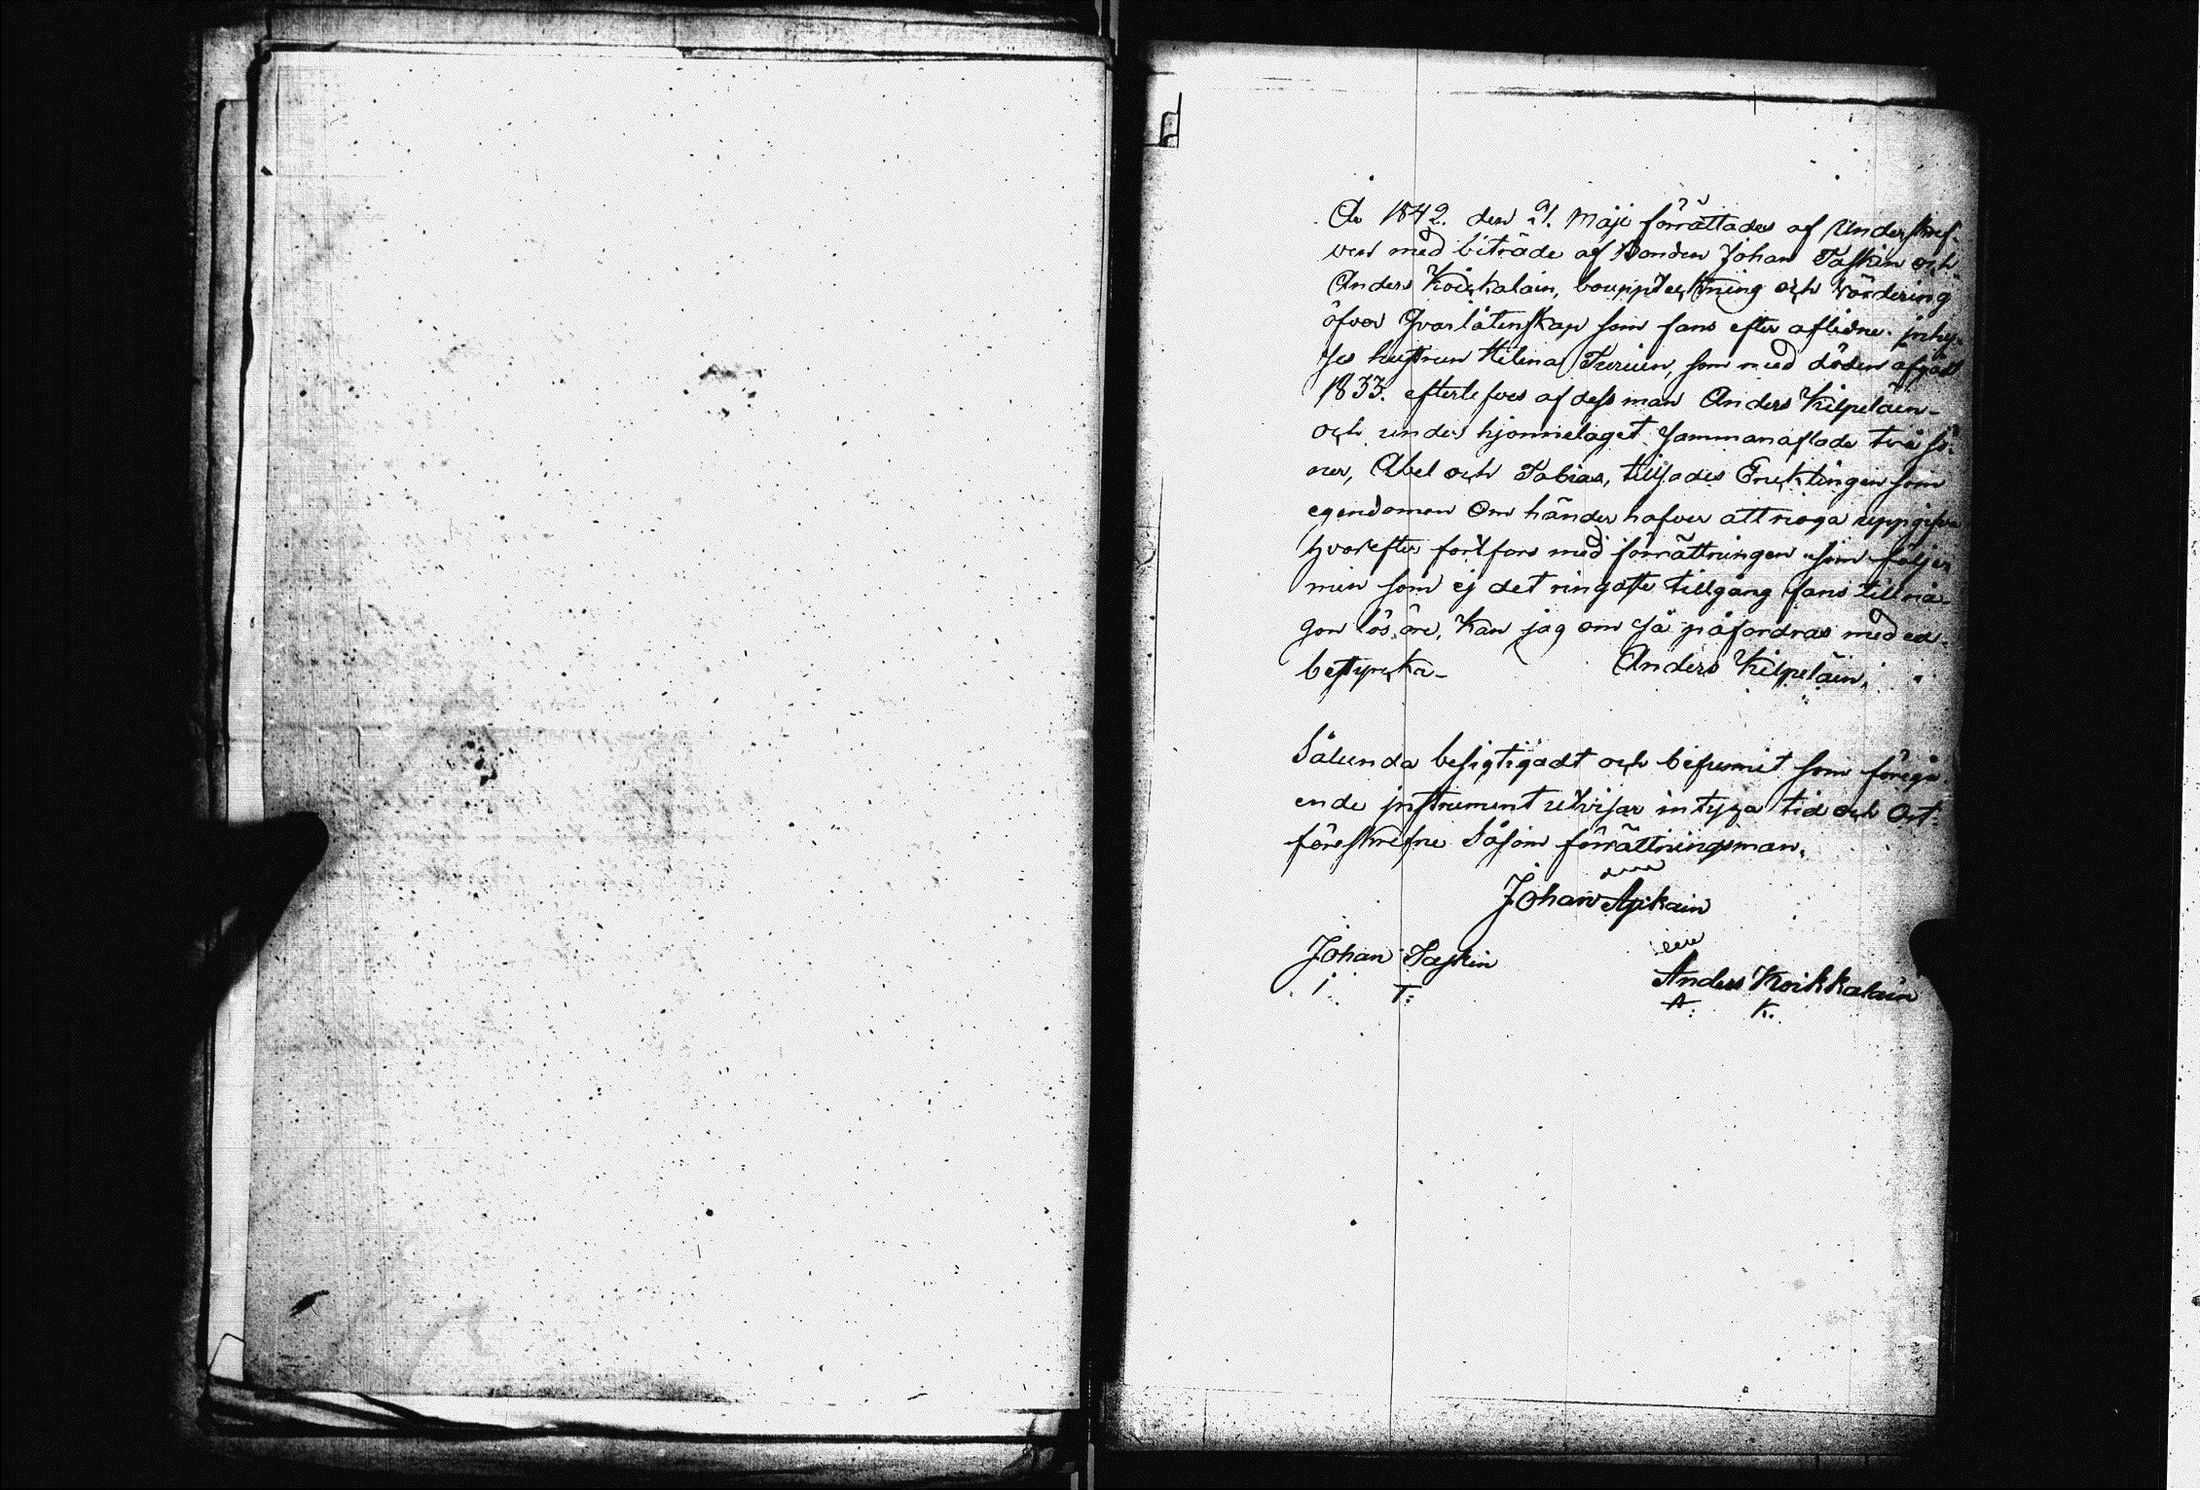 Ao 1842. den 21. Maji förrättades af Underskref-
ven med biträde af Bonden Johan Taskin och
Anders Koickalain, bouppteckning och värdering
öfver qvarlåtenskap som fans efter aflidne inhy-
ses hustrun Helena Turuin, som med döden afgådt
1833. efterlefves af dess man Anders Kilpeläin-
och under hjonnelaget sammanaflade två sö-
ner, Abel och Tobias, tillsades Encklingen som
egendomen Om händer hafver att noga uppgifva
hvarefter fortfors med förrättningen som följer
men som ej det ringaste tillgång fans till nå-
gon lösöre, kan jag om så påfordras med ed-
bestyrcka- Anders Kilpeläin.
Sålunda besigtigadt och befunnit som föregå-
ende instrument utvisar intyga tid och Ort.
föreskrefne Såsom förrättningsman.
Johan Apikain
Johan Taskin
I T:
Anders Koikkalain
A: K.